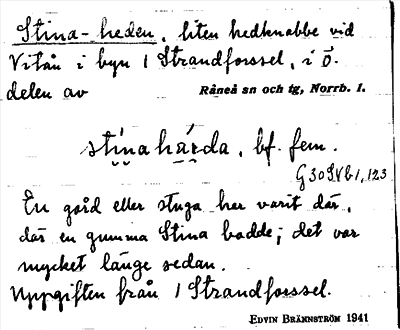 Stina-heden, liten hedknabbe vid
Vitån i byn 1 Strandforssel, i ö.
delen av Råneå sn och tg, Norrb. l.
stínahárda, bf. fem.
En gård eller stuga har varit där,
där en gumma Stina bodde; det var
mycket länge sedan.
Uppgiften från 1 Strandforssel.
EDVIN BRÄNNSTRÖM 1941